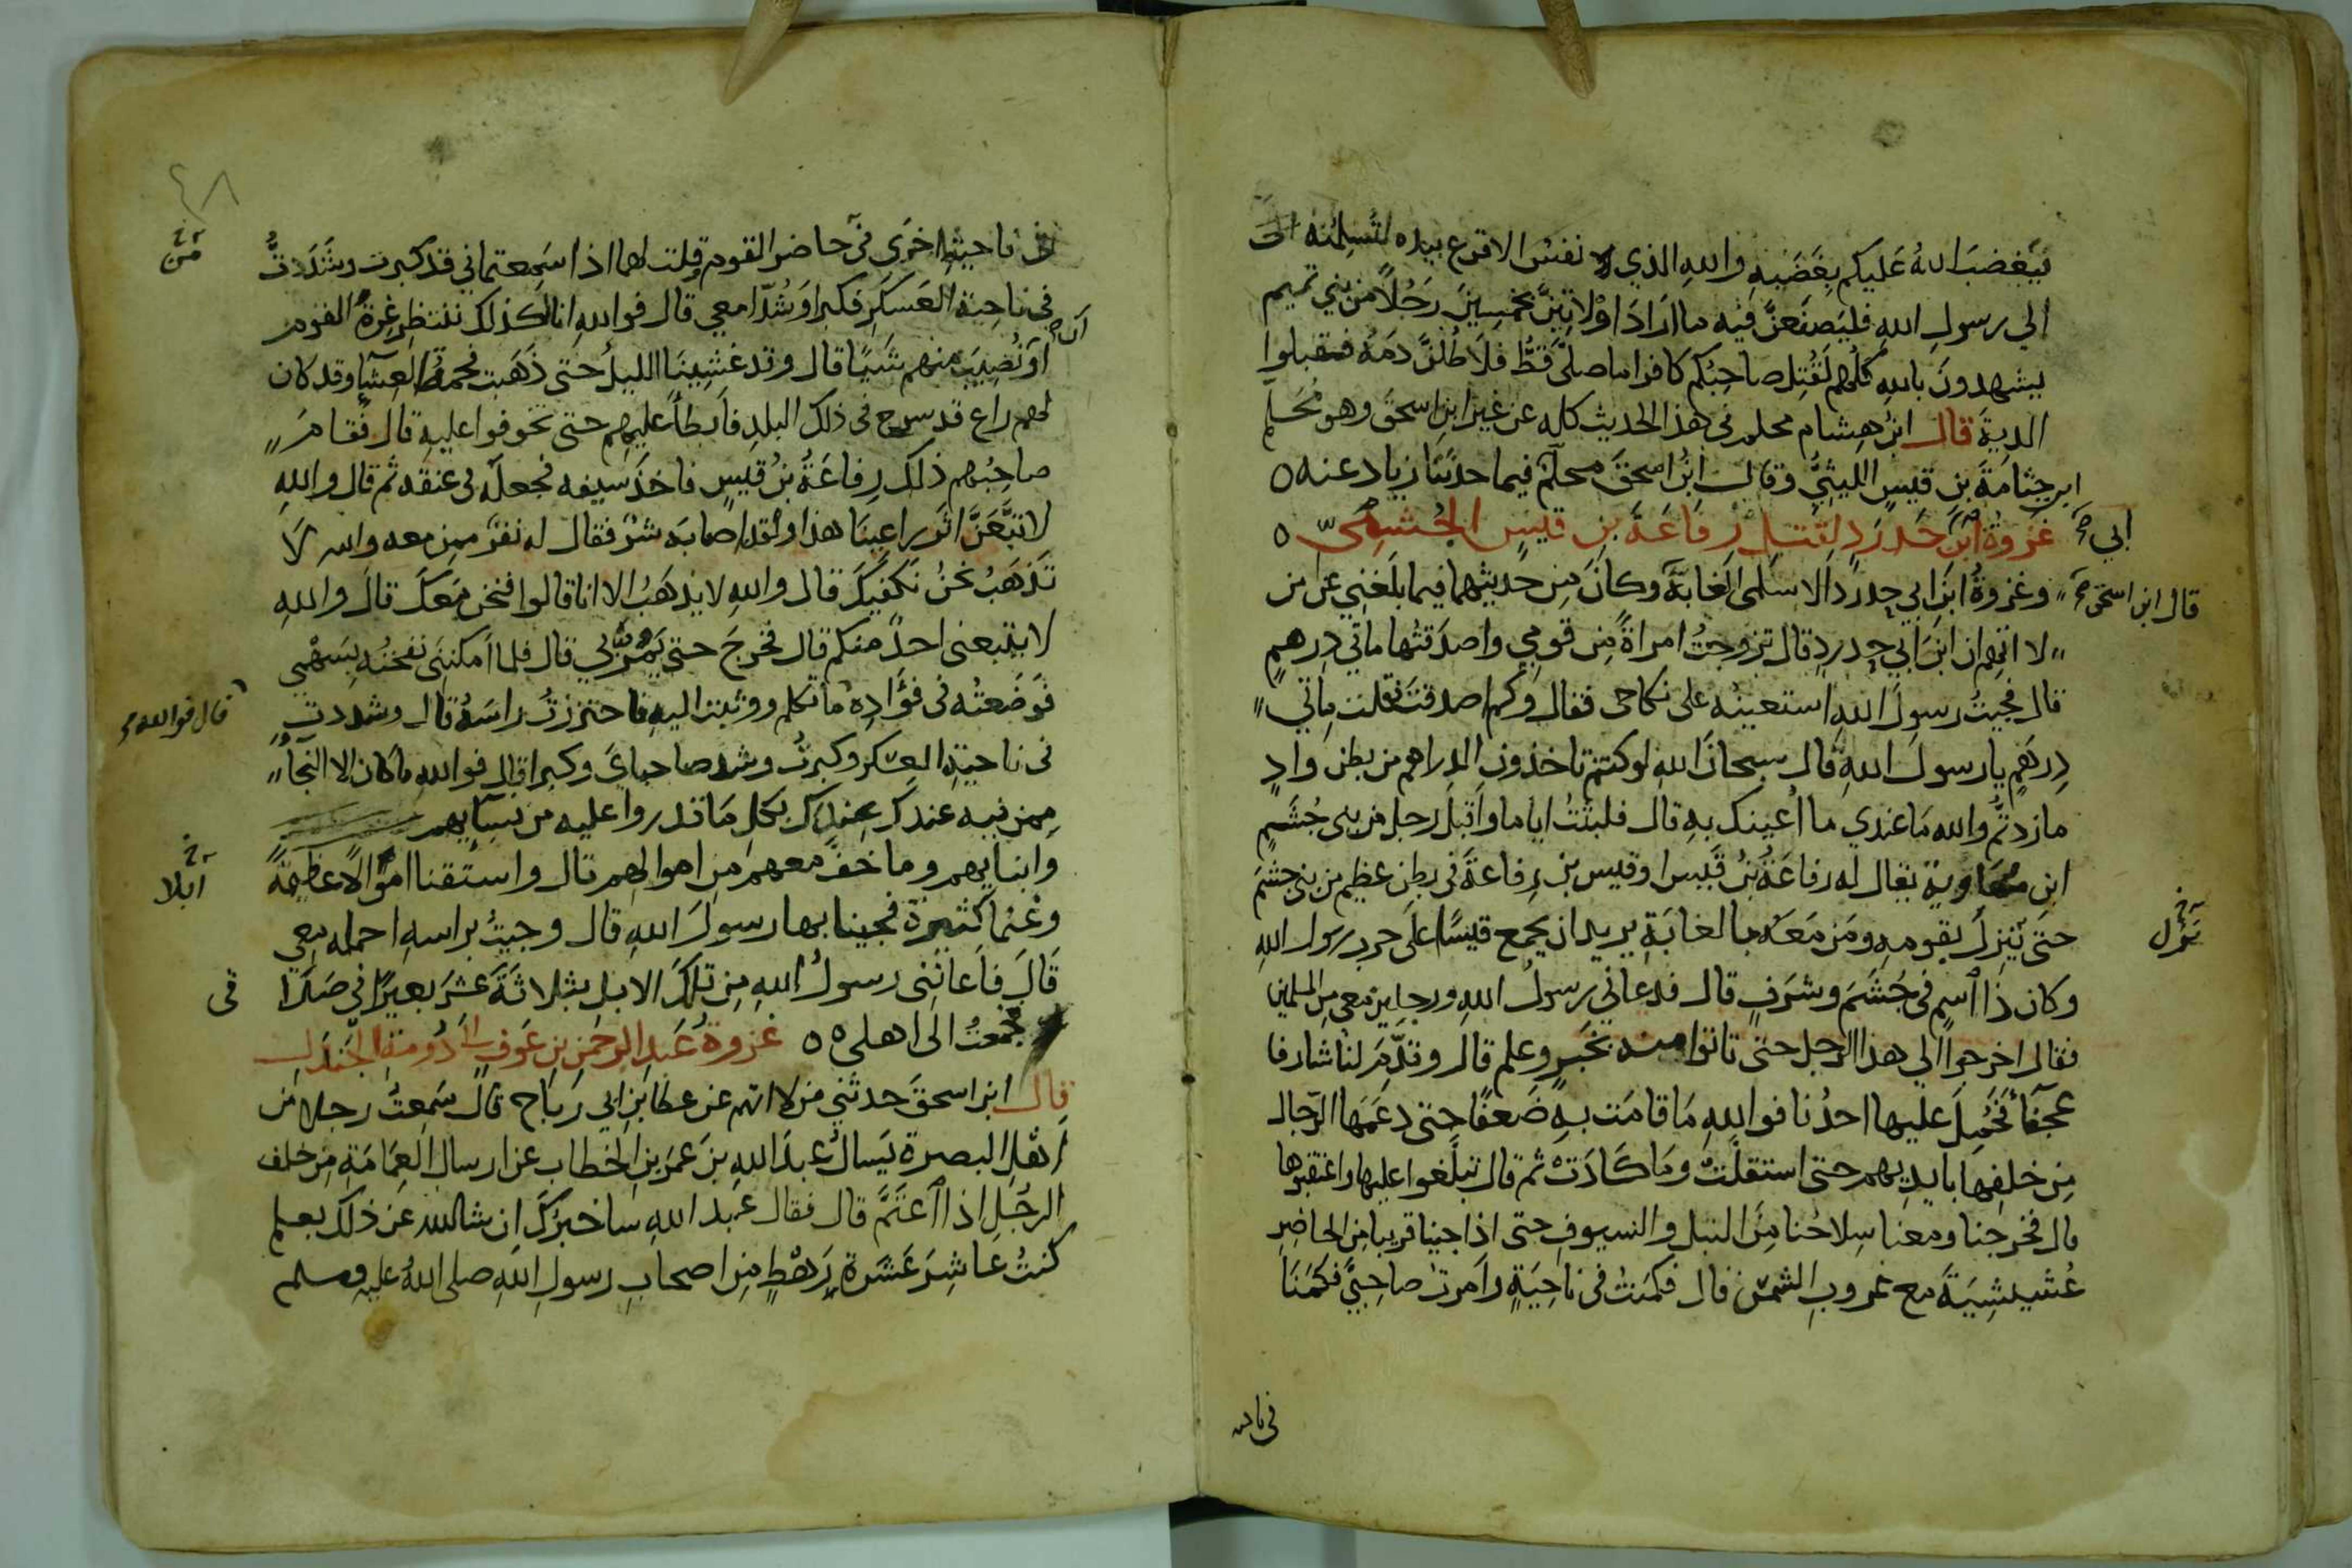 فيغضب الله عليكم بغضبه والله الذي نفس الاقرع بيده لتسلمنه
الى رسول الله فليصنعن فيه ما اراد او لاتين بخمسين رجلا من بني تميم
يشهدون بالله كلهم لقتل صاحبكم كافرا ما صلى قط فلاطلن دمه فقبلوا
الدية قال ابن هشام محلم في هذا الحديث كله عن غير ابن اسحق وهو محلم
ابن جثامة بن قيس الليثي وقال ابن اسحق محلم فيما حدثنا زياد عنه ٥
غزوة ابن ابي حدرد لقتل رفاعة بن قيس الجشمي ٥
قال ابن اسحق وغزوة ابن ابي حدرد الاسلمي الغابة وكان من حديثهما فيما بلغني عن من
لا اتهم ان ابن ابي حدرد قال تزوجت امراة من قومي واصدقتها ماتي درهم
قال فجيت رسول الله استعينه على نكاحي فقال وكم اصدقت فقلت ماتي
درهم يا رسول الله قال سبحان الله لو كنتم تاخذون الدراهم من بطن واد
ما زدتم والله ما عندي ما اعينك به قال فلبثت اياما واقبل رجل من بني جشم
ابن معاوية يقال له رفاعة بن قيس او قيس بن رفاعة في بطن عظيم من بني جشم
حتى ينزل بقومه ومن معه بالغابة يريد ان يجمع قيسا على حرب رسول الله
نزل
وكان ذا اسم في جشم وشرف قال فدعاني رسول الله ورجلين معي من المسلمين
فقال اخرجوا الى هذا الرجل حتى تاتوا منه بخبر وعلم قال وقدم لنا شارفا
عجفا فحمل عليها احدنا فوالله ما قامت به ضعفا حتى دعمها الرجال
من خلفها بايديهم حتى استقلت وما كادت ثم قال تبلغوا عليها واعتقبوها
قال فخرجنا ومعنا سلاحنا من النبل والسيوف حتى اذا جينا قريبا من الحاضر
عشيشية مع غروب الشمس قال فكمنت في ناحية وامرت صاحبي فكمنا
في ناحيه
٤٨
في ناحية اخرى في حاضر القوم وقلت لهما اذا سمعتماني قد كبرت وشددت
من
في ناحية العسكر فكبرا وشدا معي قال فوالله انا لكذلك ننتظر غرة القوم
ان
او نصيب منهم شيا قال وقد غشينا الليل حتى ذهبت فحمة العشا وقد كان
لهم راع قد سرح في ذلك البلد فابطا عليهم حتى تخوفوا عليه قال فقام
صاحبهم ذلك رفاعة بن قيس فاخذ سيفه فجعله في عنقه ثم قال والله
لاتبعن اثر راعينا هذا ولقد اصابه شر فقال له نفر ممن معه والله لا
تذهب نحن نكفيك قال والله لا يذهب الا انا قالوا فنحن معك قال والله
لا يتبعني احد منكم قال فخرج حتى يمر بي قال فلما امكنني نفحته بسهمي
فوضعته في فؤاده ما تكلم ووثبت اليه فاحتززت راسه قال وشددت
قال فوالله
في ناحية العسكر وكبرت وشد صاحباي وكبرا قال فوالله ما كان الا النجا
ممن فيه عندك عندك بكل ما قدروا عليه من نسايهم
وابنايهم وما خف معهم من اموالهم قال واستقنا اموالا عظيمة
ابلا
وغنما كثيرة فجينا بها رسول الله قال وجيت براسه احمله معي
قال فاعانني رسول الله من تلك الابل بثلاثة عشر بعيرا في صداقي
فجمعت الى اهلي ٥٥ غزوة عبد الرحمن بن عوف الى دومة الجندل
قال ابن اسحق حدثني من لا اتهم عن عطا بن ابي رباح قال سمعت رجلا من
اهل البصرة يسال عبد الله بن عمر بن الخطاب عن ارسال العمامة من خلف
الرجل اذا اعتم قال فقال عبد الله ساخبرك ان شا الله عن ذلك بعلم
كنت عاشر عشرة رهط من اصحاب رسول الله صلى الله عليه وسلم